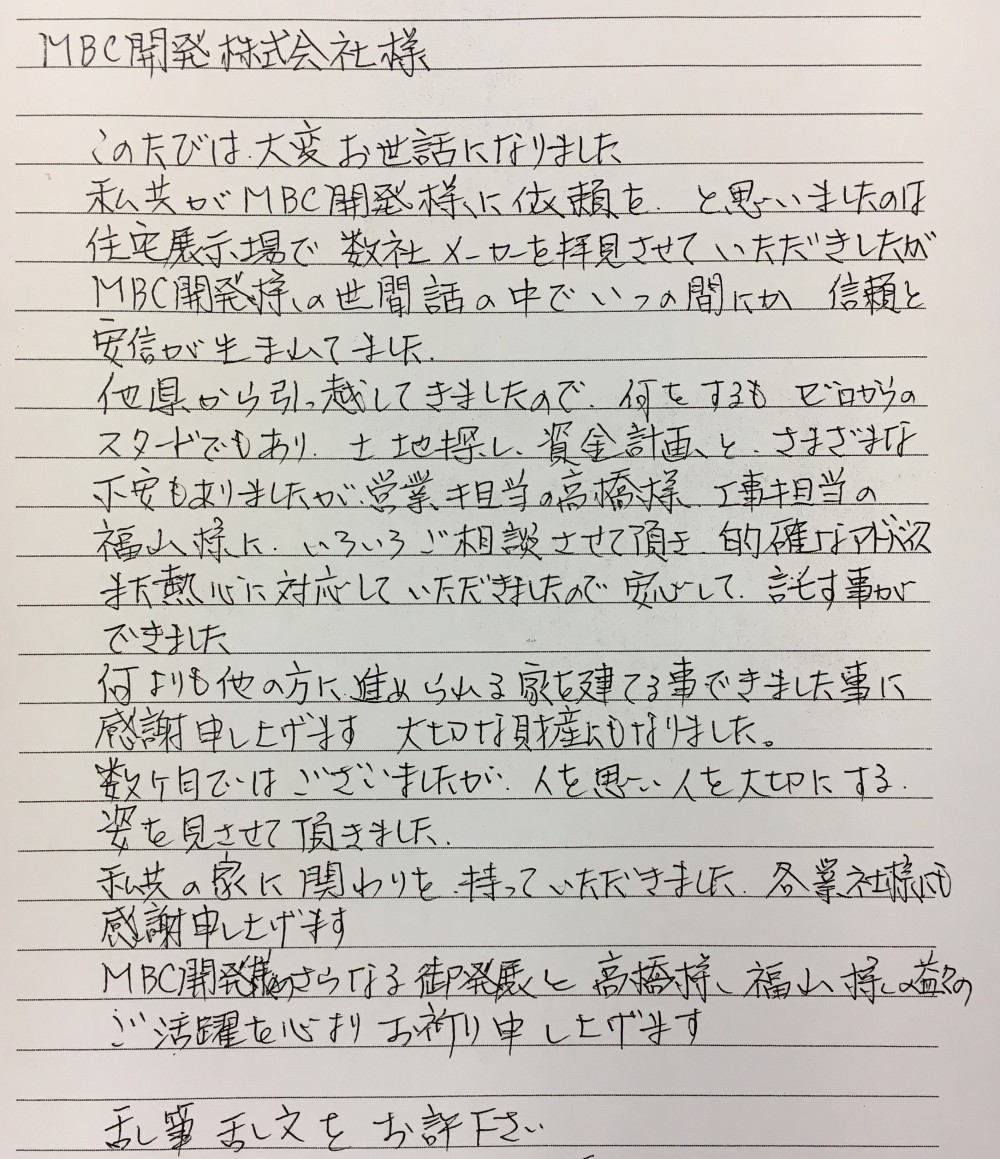 MBC開発株式会社様
このたびは大変お世話になりました
私共がMBC開発様に依頼を と思いましたのは
住宅展示場で数社メーカーを拝見させていただきましたが
MBC開発様の世間話の中でいつの間にか 信頼と
安信が生まれてました。
他県から引っ越してきましたので、何をするも ゼロからの
スタートでもあり、土地探し、資金計画、と、さまざまな
不安もありましたが営業担当の高橋様、工事担当の
福山様に、いろいろご相談させて頂き、的確なアドバイス
また熱心に対応していただきましたので安心して、託す事が
できました
何よりも他の方に進められる家を建てる事できました事に
感謝申し上げます 大切な財産にもなりました。
数ヶ月ではございましたが、人を思い人を大切にする、
姿を見させて頂きました。
私共の家に関わりを持っていただきました、各業社様にも
感謝申し上げます
MBC開発様のさらなる御発展と高橋様、福山様の益々の
ご活躍を心よりお祈り申し上げます
乱筆乱文をお許下さい